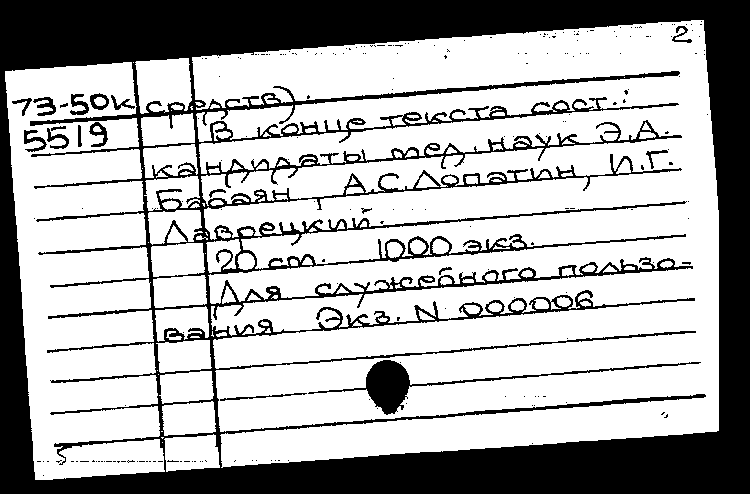 2
73-50к средств).
5519 В конце текста сост.:
кандидаты мед. наук Э.А.
Бабаян, А.С.Лопатин, И.Г.
Лаврецкий.
20 ст. 1000 экз.
Для служебного пользо-
вания. Экз. N 000006.
5